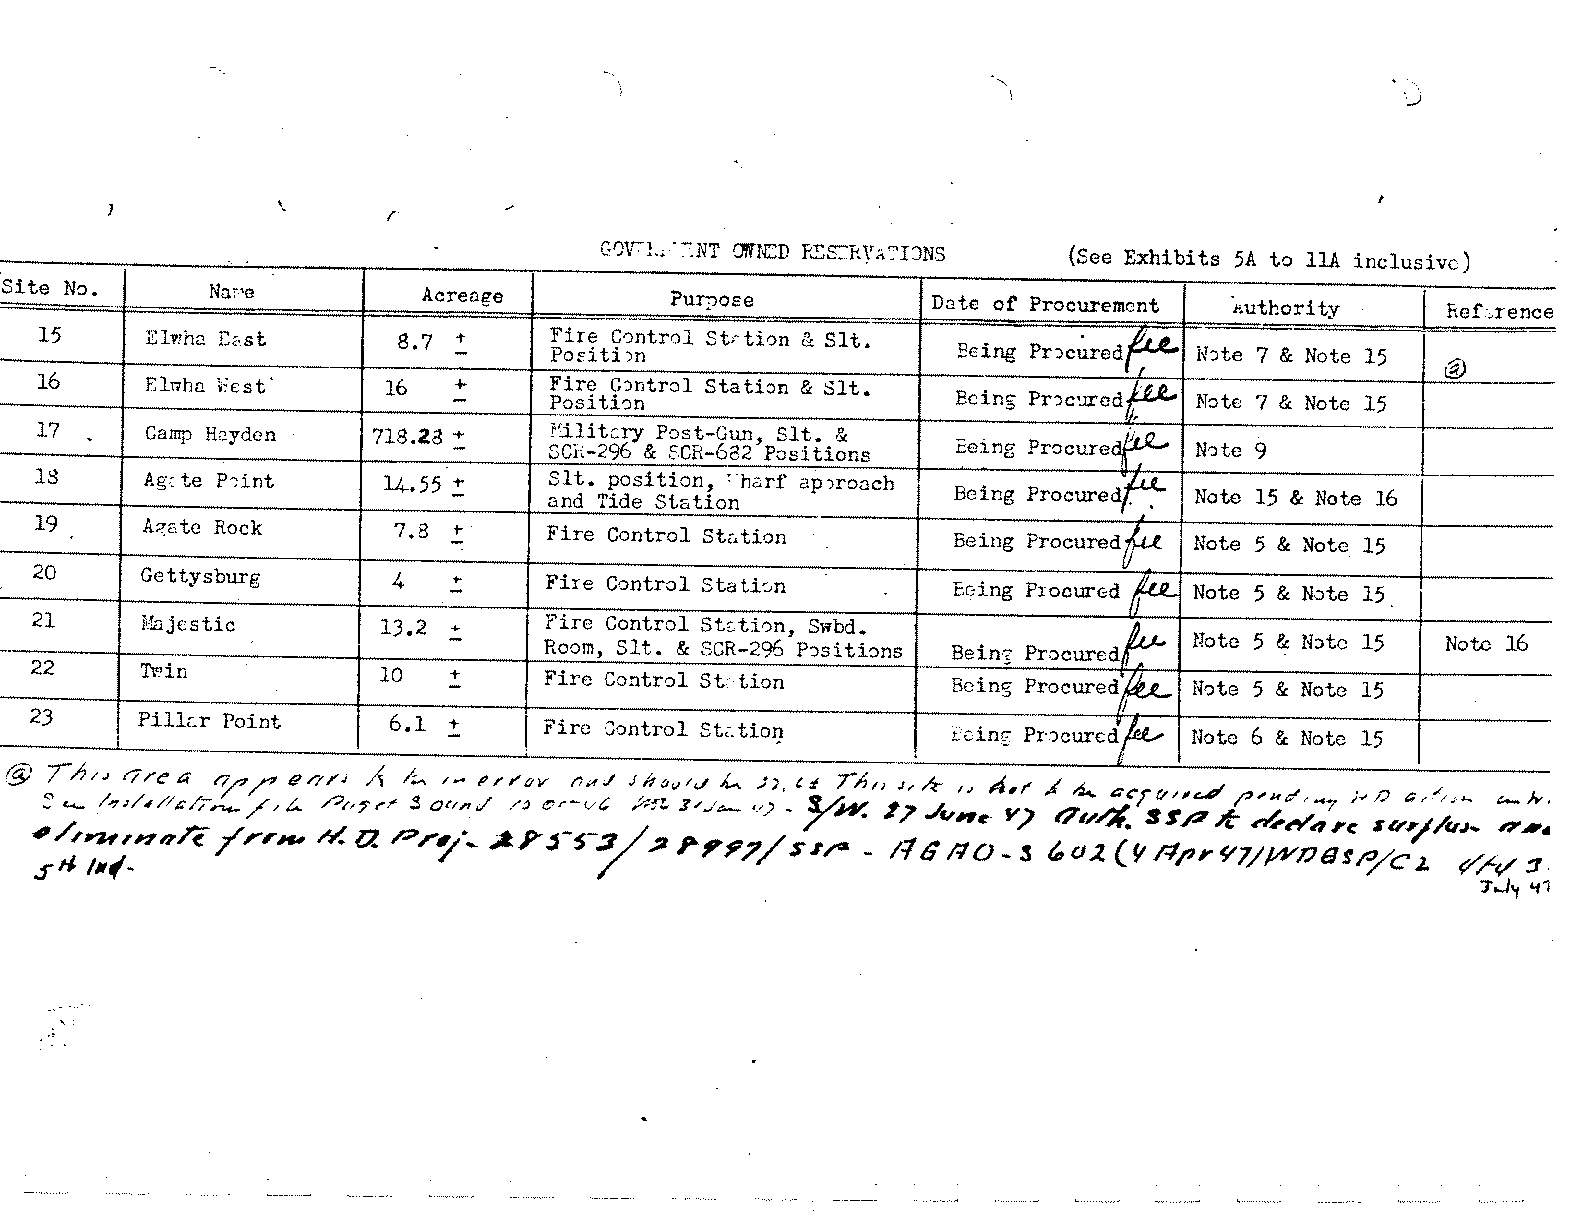 GOVERNMENT OWNED RESERVATIONS (See Exhibits 5A to 11A inclusive)
Site No. Name Acreage Purpose Date of Procurement Authority Reference
15 Elwha East 8.7 ± Fire Control Station & Slt. Position Being Procured fee Note 7 & Note 15 @
16 Elwha West 16 ± Fire Control Station & Slt. Position Being Procured fee Note 7 & Note 15
17 Camp Hayden 718.28 ± Military Post-Gun, Slt. & SCR-296 & SCR-682 Positions Being Procured fee Note 9
18 Agate Point 14.55 ± Slt. position, Wharf approach and Tide Station Being Procured fee Note 15 & Note 16
19 Agate Rock 7.8 ± Fire Control Station Being Procured fee Note 5 & Note 15
20 Gettysburg 4 ± Fire Control Station Being Procured fee Note 5 & Note 15
21 Majestic 13.2 ± Fire Control Station, Swbd. Room, Slt. & SCR-296 Positions Being Procured fee Note 5 & Note 15 Note 16
22 Twin 10 ± Fire Control Station Being Procured fee Note 5 & Note 15
23 Pillar Point 6.1 ± Fire Control Station Being Procured fee Note 6 & Note 15
@ This area appears to be in error and should be This site is not to be acquired pending action
Installation file Puget Sound - S/W. 27 June 47 Auth. SSP to declare surplus and
eliminate from H.D. Proj. 28553/28997/SSP - AGAO-S 602 (4 Apr 47/WDGSP/C2 dtd 3
5th Ind.
July 47